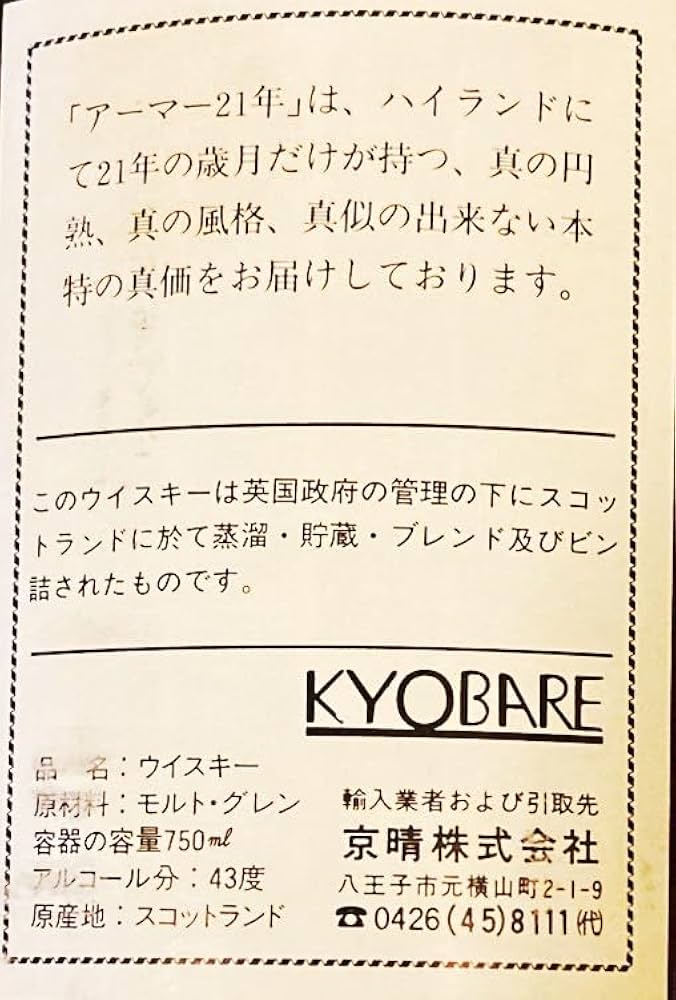 「アーマー21年」は、ハイランドに
て21年の歳月だけが持つ、真の円
熟、真の風格、真似の出来ない本
特の真価をお届けしております。
このウイスキーは英国政府の管理の下にスコッ
トランドに於て蒸溜・貯蔵・ブレンド及びビン
詰されたものです。
KYOBARE
品　名：ウイスキー
原材料：モルト・グレン
容器の容量750ml
アルコール分：43度
原産地：スコットランド
輸入業者および引取先
京晴株式会社
八王子市元横山町2-1-9
☎0426(45)8111㈹